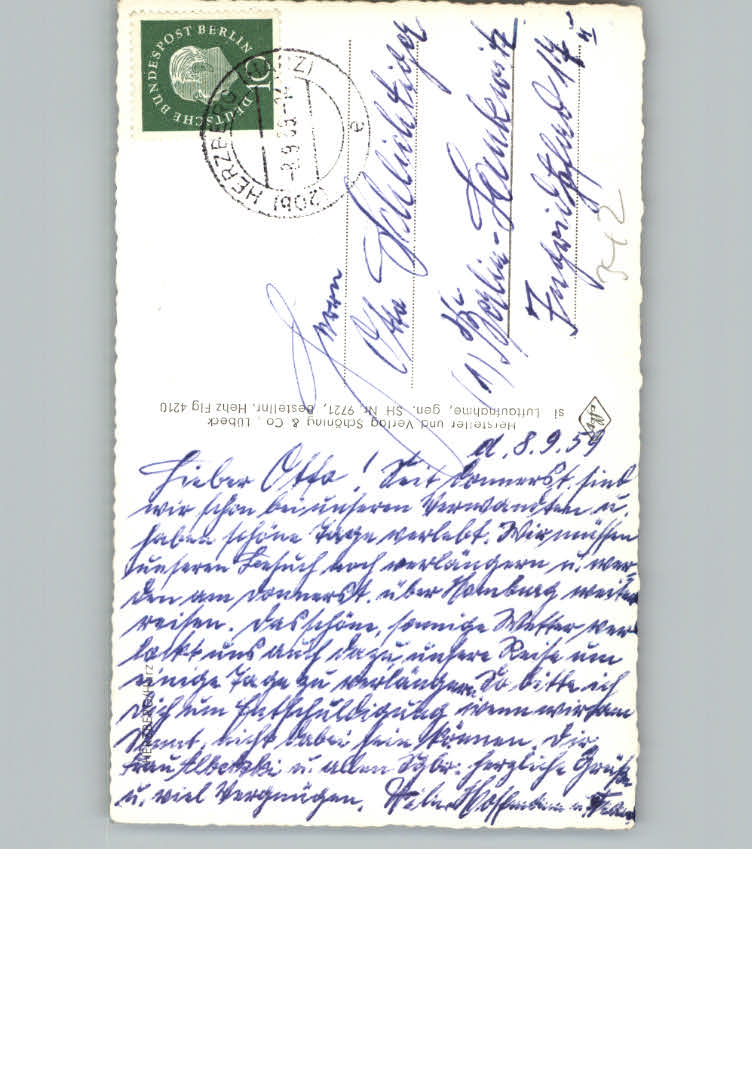 DEUTSCHE BUNDESPOST BERLIN
10
(20b) HERZBERG (HARZ)
-8.9.59.-
e
Herrn
Otto Schlichtiger
(1) Berlin-Lankwitz
17 II
312
Hersteller und Verlag Schöning & Co., Lübeck
si Luftaufnahme, gen. SH Nr. 9721, Bestellnr. Hehz Flg 4210
HERZBERG/Harz
d. 8.9.59
Lieber Otto! Seit Donnerst. sind
wir schon bei unseren Verwandten u.
haben schöne Tage verlebt. Wir müssen
unseren Besuch noch verlängern u. wer-
den am Donnerst. über Hamburg weiter
reisen. Das schöne, sonnige Wetter ver-
lockt uns auch dazu, unsere Reise um
einige Tage zu verlängern. So bitte ich
Dich um Entschuldigung wenn wir am
nicht dabei sein können. Dir
Frau u. allen herzliche Grüße
u. viel Vergnügen. Hoffmann u. Frau